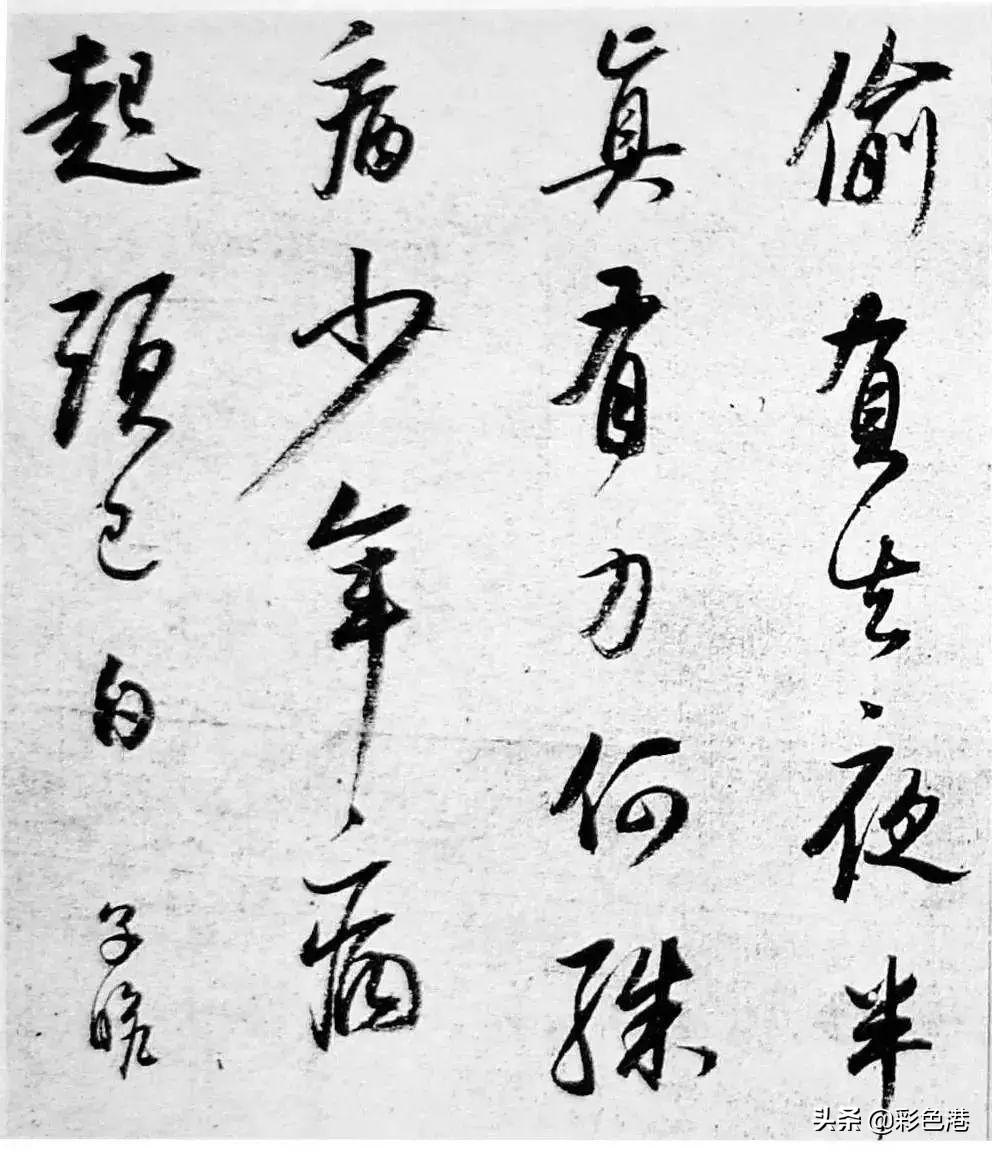 偷負去夜半
眞有力何殊
病少年病
起頭已白
子瞻
头条 @彩色港